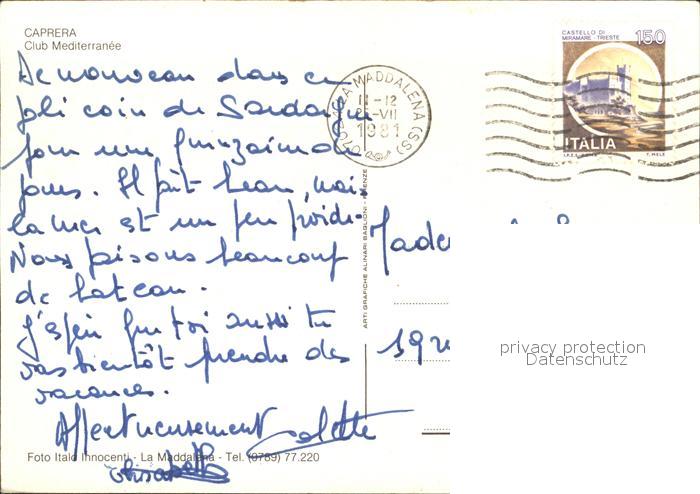 CAPRERA
Club Mediterranée
De nouveau dans ce
joli coin de Sardaigne
pour une quinzaine de
jours. Il fait beau, mais
la mer est un peu froide.
Nous faisons beaucoup
de bateau.
J'espère que toi aussi tu
vas bientôt prendre des
vacances.
Affectueusement Colette
Elisabetta
Foto Italo Innocenti - La Maddalena - Tel. (0789) 77.220
ARTI GRAFICHE ALINARI BAGLIONI - FIRENZE
07024 LA MADDALENA (SS)
11-12
VII
1981
CASTELLO DI
MIRAMARE - TRIESTE
150
ITALIA
T. MELE
privacy protection
Datenschutz